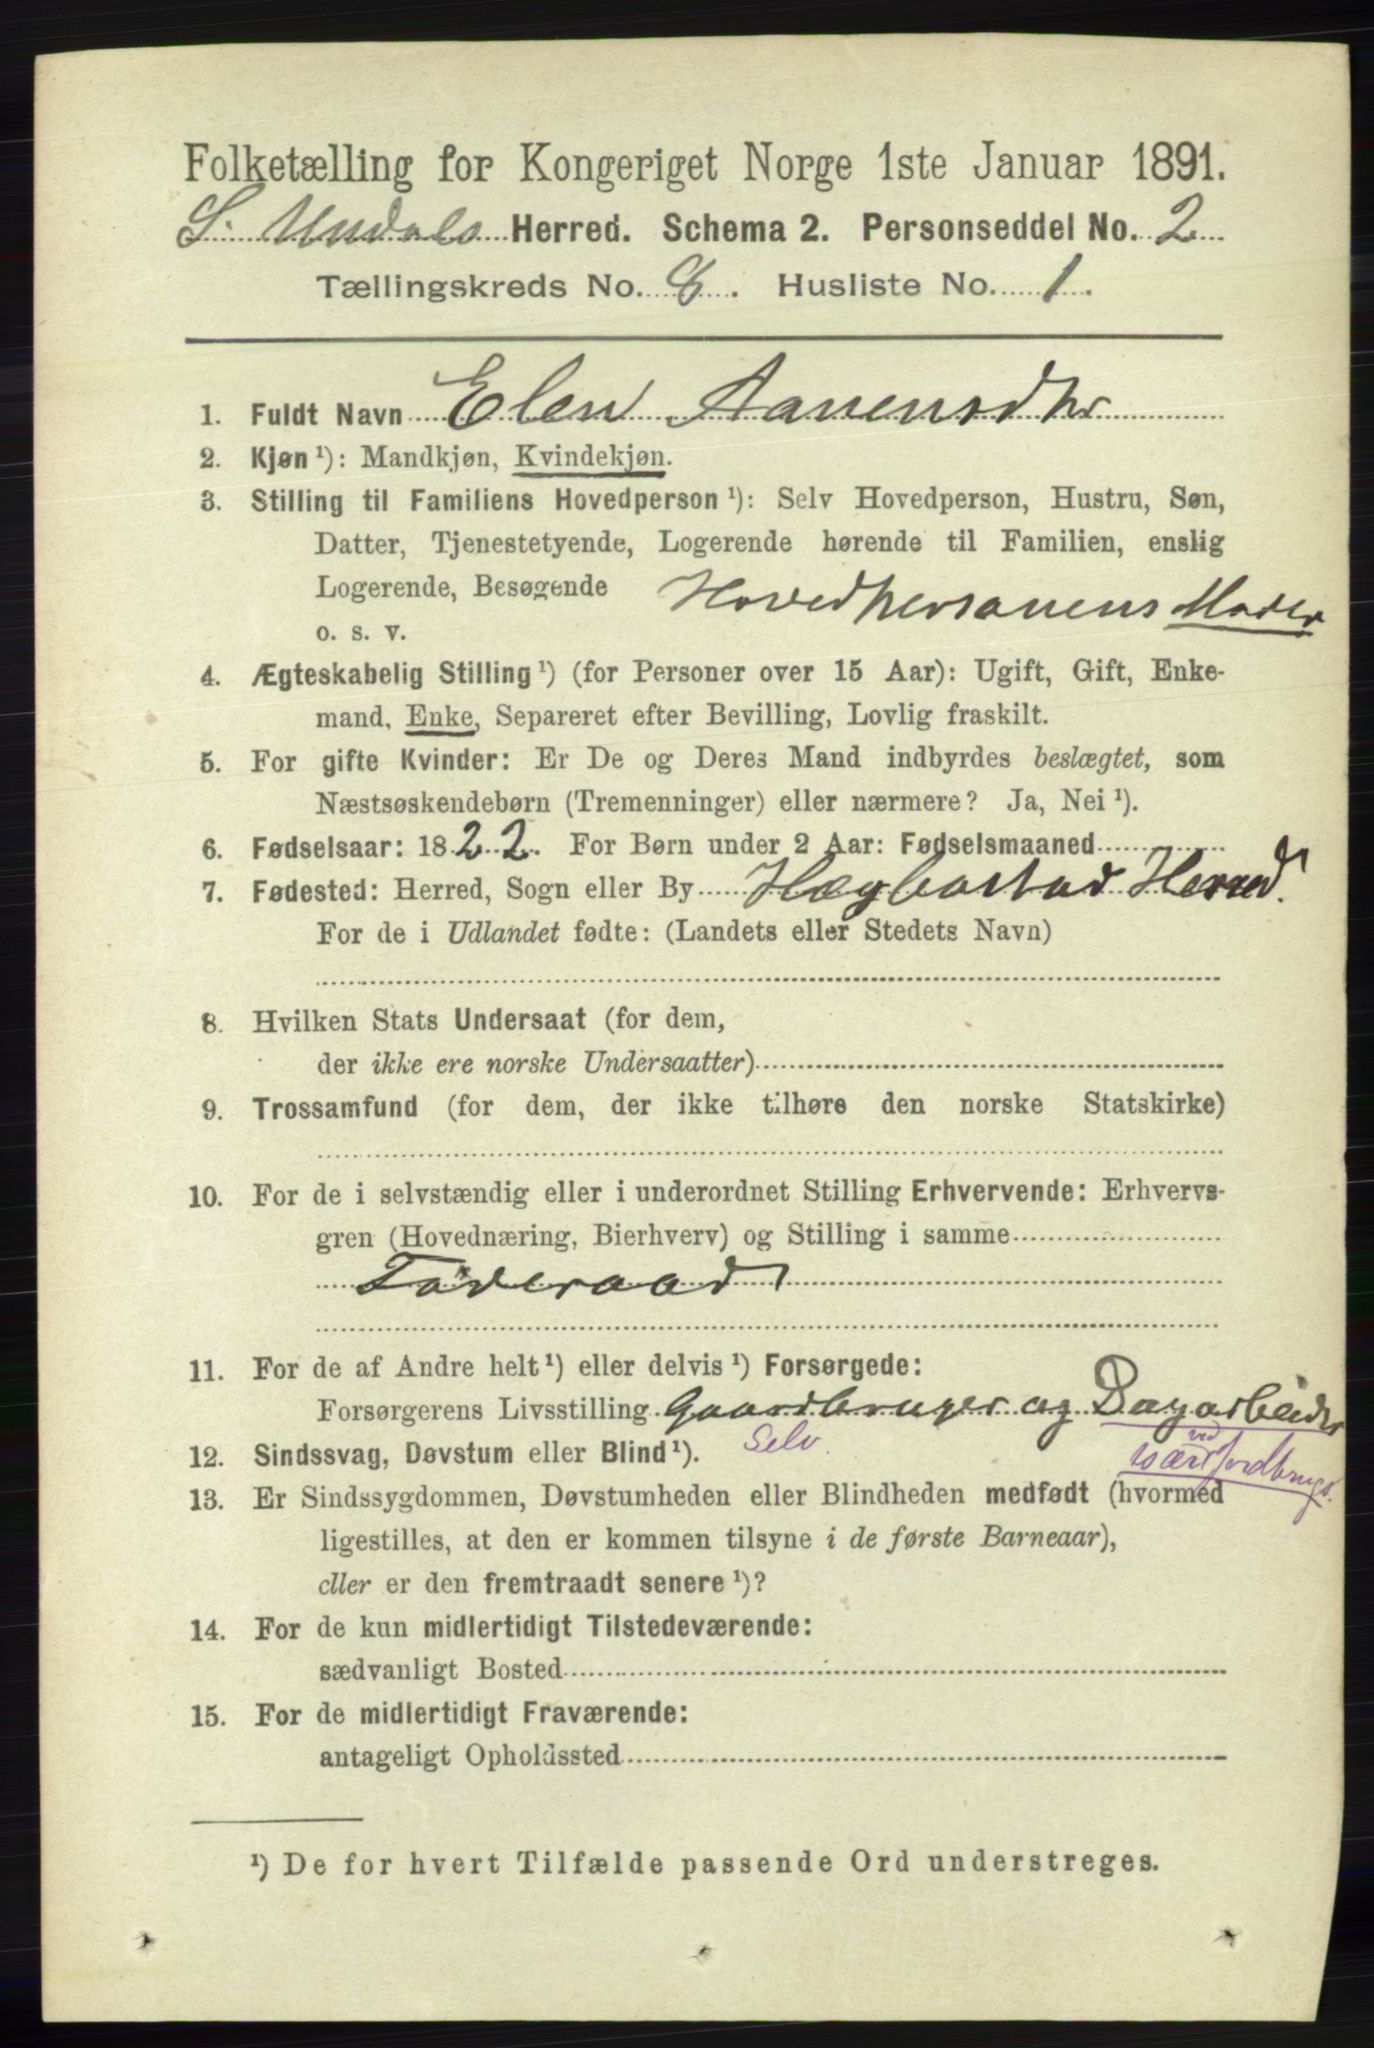 Folketælling for Kongeriget Norge 1ste Januar 1891.
S. Undals Herred. Schema 2. Personseddel No. 2
Tællingskreds No. 8. Husliste No. 1.
1. Fuldt Navn Elen Aanensdtr
2. Kjøn ¹): Mandkjøn, Kvindekjøn.
3. Stilling til Familiens Hovedperson ¹): Selv Hovedperson, Hustru, Søn,
Datter, Tjenestetyende, Logerende hørende til Familien, enslig
Logerende, Besøgende Hovedpersonens Moder
o. s. v.
4. Ægteskabelig Stilling ¹) (for Personer over 15 Aar): Ugift, Gift, Enke-
mand, Enke, Separeret efter Bevilling, Lovlig fraskilt.
5. For gifte Kvinder: Er De og Deres Mand indbyrdes beslægtet, som
Næstsøskendebørn (Tremenninger) eller nærmere? Ja, Nei ¹).
6. Fødselsaar: 1822. For Børn under 2 Aar: Fødselsmaaned
7. Fødested: Herred, Sogn eller By Hægbostad Herred.
For de i Udlandet fødte: (Landets eller Stedets Navn)
8. Hvilken Stats Undersaat (for dem,
der ikke ere norske Undersaatter)
9. Trossamfund (for dem, der ikke tilhøre den norske Statskirke)
10. For de i selvstændig eller i underordnet Stilling Erhvervende: Erhvervs-
gren (Hovednæring, Bierhverv) og Stilling i samme
Föderaad
11. For de af Andre helt ¹) eller delvis ¹) Forsørgede:
Forsørgerens Livsstilling Gaardbruger og Dagarbeider
12. Sindssvag, Døvstum eller Blind ¹). Selv. ved
jordbrugs.
13. Er Sindssygdommen, Døvstumheden eller Blindheden medfødt (hvormed
ligestilles, at den er kommen tilsyne i de første Barneaar),
eller er den fremtraadt senere ¹)?
14. For de kun midlertidigt Tilstedeværende:
sædvanligt Bosted
15. For de midlertidigt Fraværende:
antageligt Opholdssted
¹) De for hvert Tilfælde passende Ord understreges.